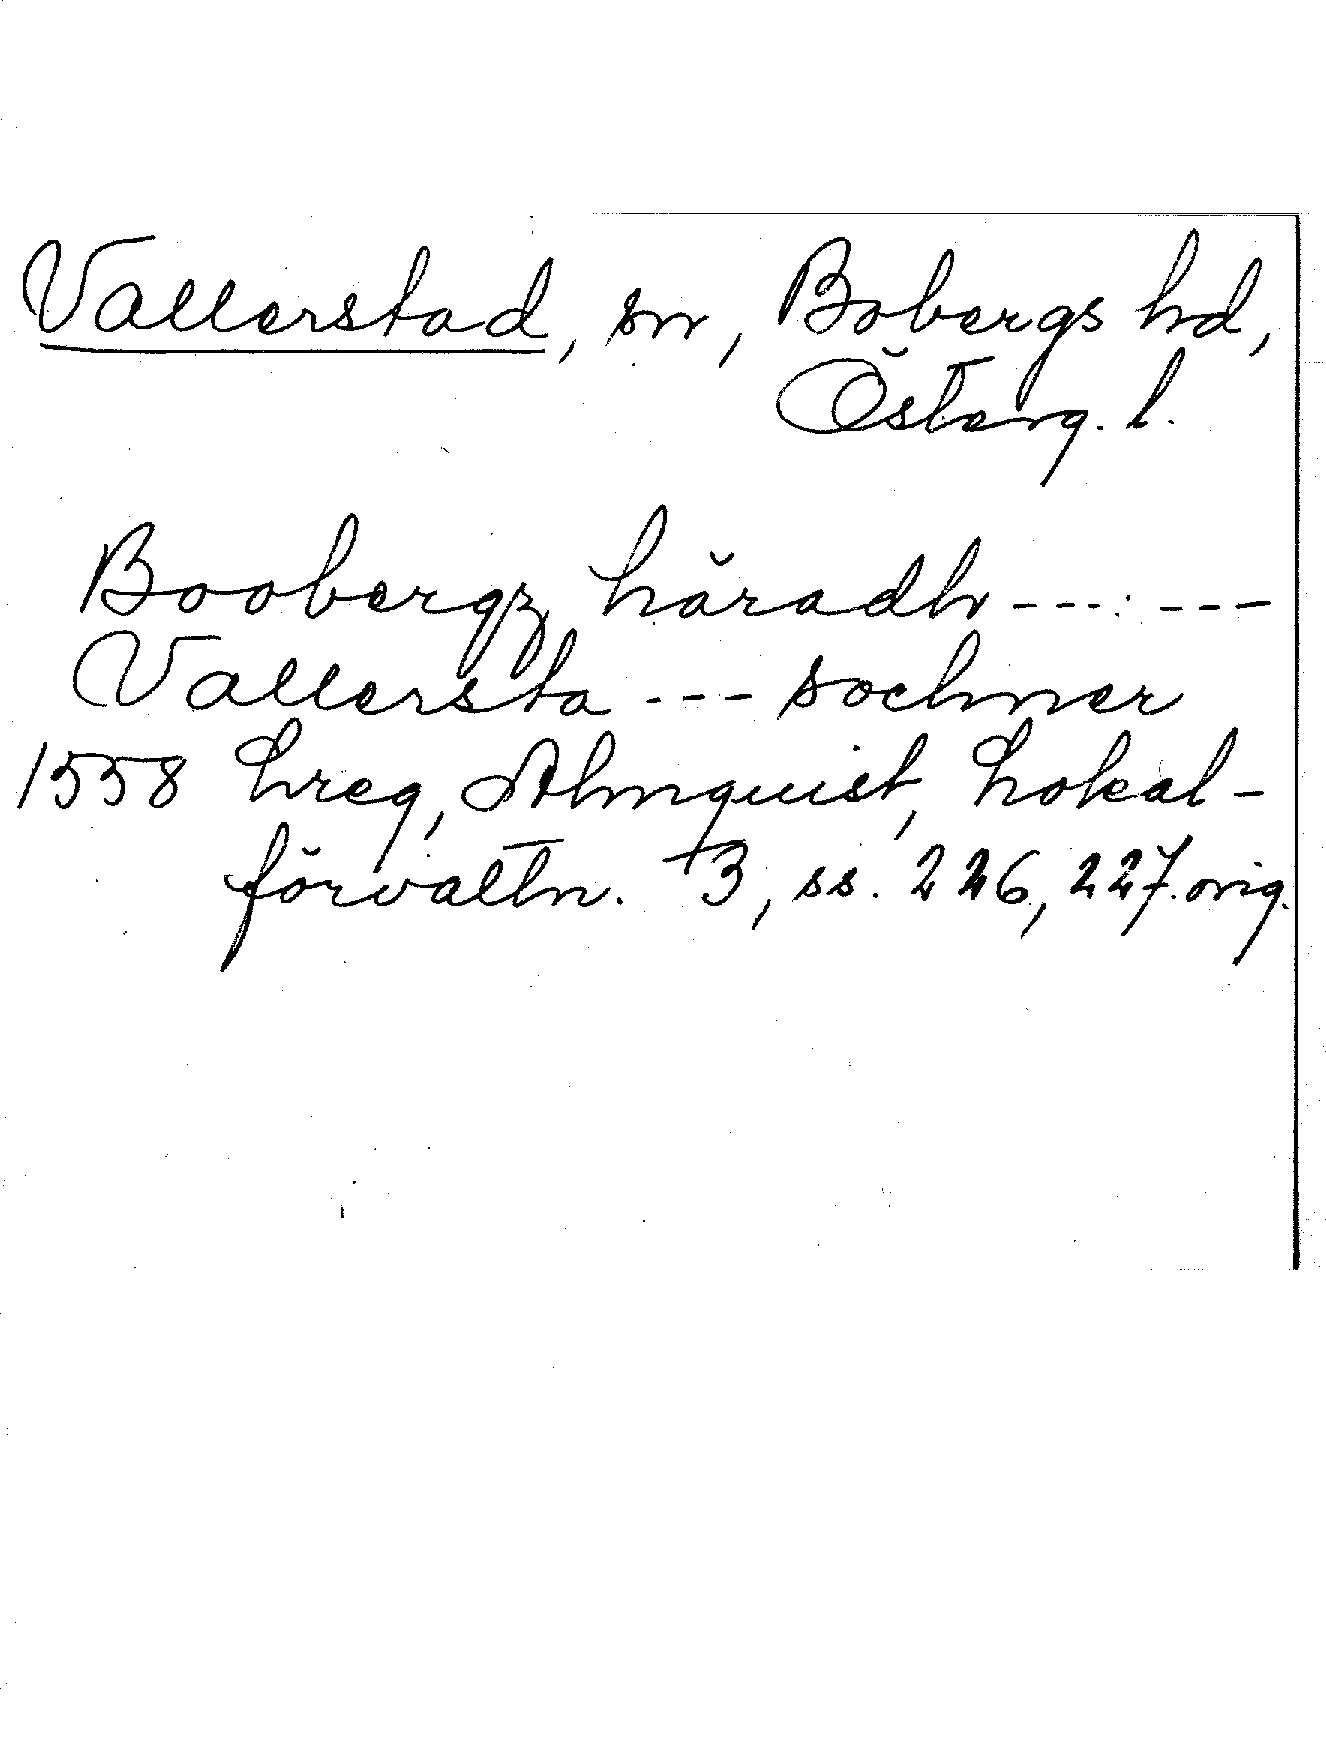 Vallerstad, sn, Bobergs hd,
Österg. l.
Boobergz häradh --- ---
Vallersta --- sochner
1558 Lreg, Almquist, Lokal-
förvaltn. 3, ss. 226, 227. orig.